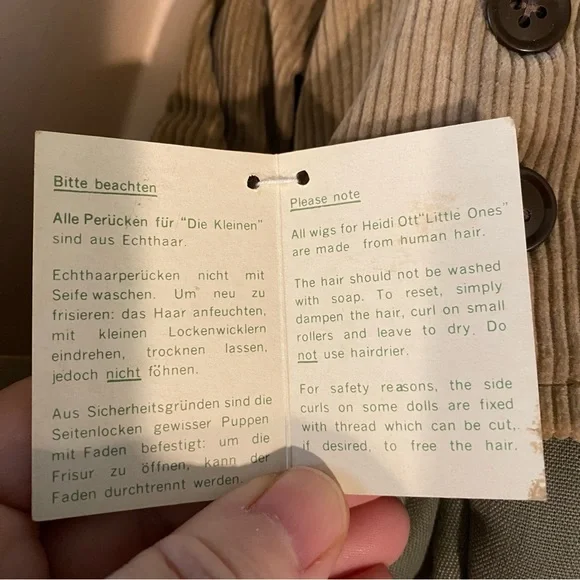 Bitte beachten
Alle Perücken für "Die Kleinen"
sind aus Echthaar.
Echthaarperücken nicht mit
Seife waschen. Um neu zu
frisieren: das Haar anfeuchten,
mit kleinen Lockenwicklern
eindrehen, trocknen lassen,
jedoch nicht föhnen.
Aus Sicherheitsgründen sind die
Seitenlocken gewisser Puppen
mit Faden befestigt: um die
Frisur zu öffnen, kann der
Faden durchtrennt werden.
Please note
All wigs for Heidi Ott"Little Ones"
are made from human hair.
The hair should not be washed
with soap. To reset, simply
dampen the hair, curl on small
rollers and leave to dry. Do
not use hairdrier.
For safety reasons, the side
curls on some dolls are fixed
with thread which can be cut,
if desired, to free the hair.